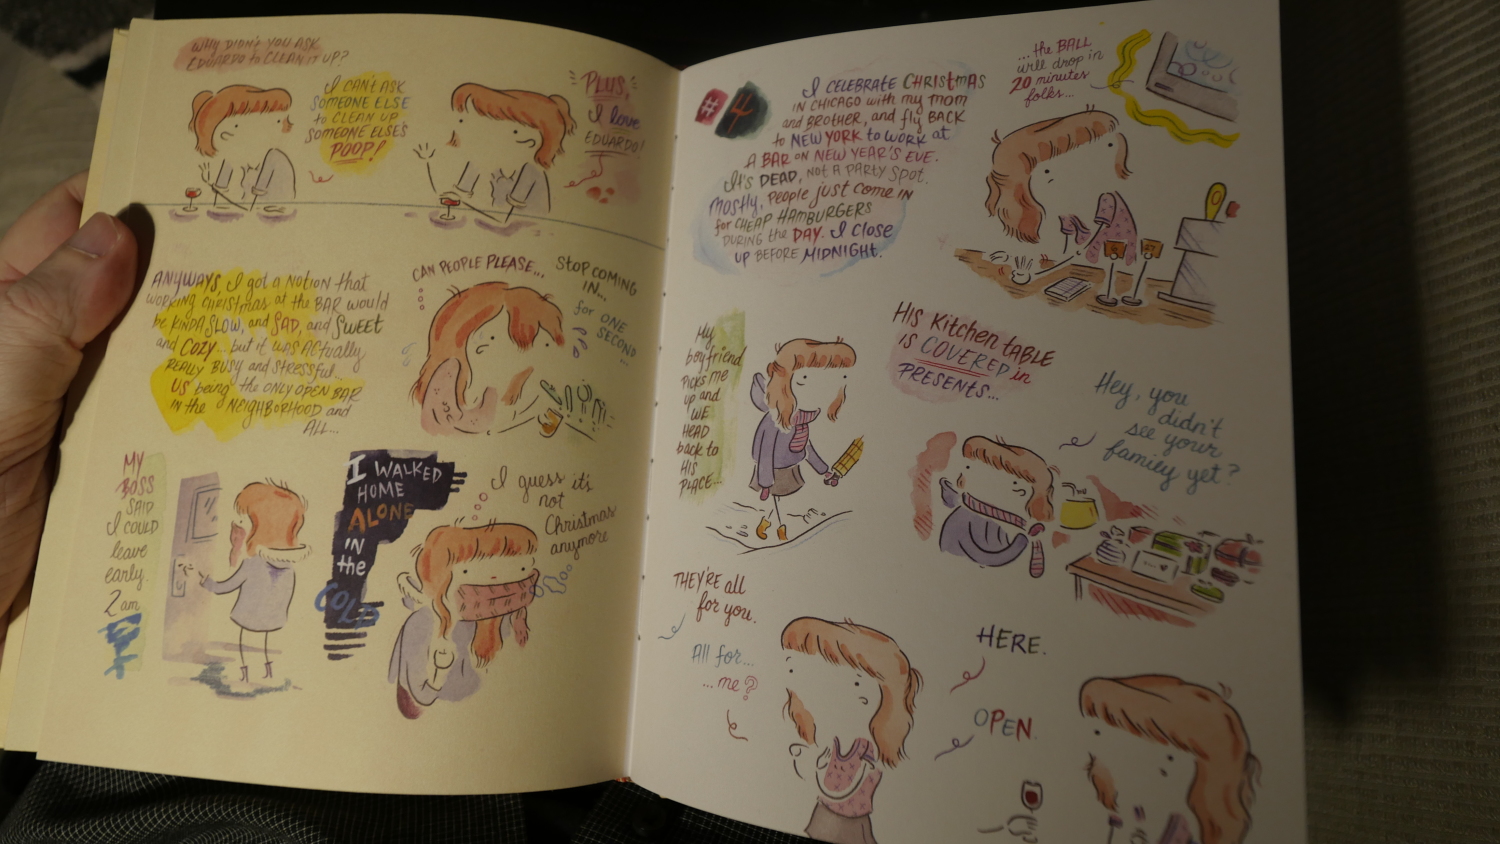 WHY DIDN'T YOU ASK
EDUARDO to CLEAN IT UP?
I CAN'T ASK
SOMEONE ELSE
to CLEAN UP
SOMEONE ELSE'S
POOP!
PLUS,
I love
EDUARDO!
ANYWAYS, I got a NOTION that
WORKING CHRISTMAS at the BAR would
be KINDA SLOW, and SAD, and SWEET
and COZY... but it WAS ACTUALLY
REALLY BUSY and STRESSFUL...
US being the ONLY OPEN BAR
IN the NEIGHBORHOOD and
ALL...
CAN PEOPLE PLEASE...
STOP COMING
IN...
for ONE
SECOND
...
MY
BOSS
SAID
I COULD
leave
early.
2 am
I WALKED
HOME
ALONE
IN
the
COLD
I guess it's
not
Christmas
anymore
#4
I CELEBRATE CHRISTMAS
IN CHICAGO with my mom
and BROTHER, and fly BACK
to NEW YORK to WORK at
A BAR on NEW YEAR'S EVE.
It's DEAD, NOT A PARTY SPOT.
MOSTLY, PEOPLE just COME IN
for CHEAP HAMBURGERS
DURING the DAY. I CLOSE
UP BEFORE MIDNIGHT.
...the BALL
will drop in
20 minutes
folks...
My
boyfriend
PICKS ME
up and
WE
HEAD
back to
HIS
PLACE...
HIS KITCHEN TABLE
IS COVERED in
PRESENTS...
Hey, you
didn't
see your
family yet?
THEY'RE all
for you.
All for...
...me?
HERE.
OPEN.